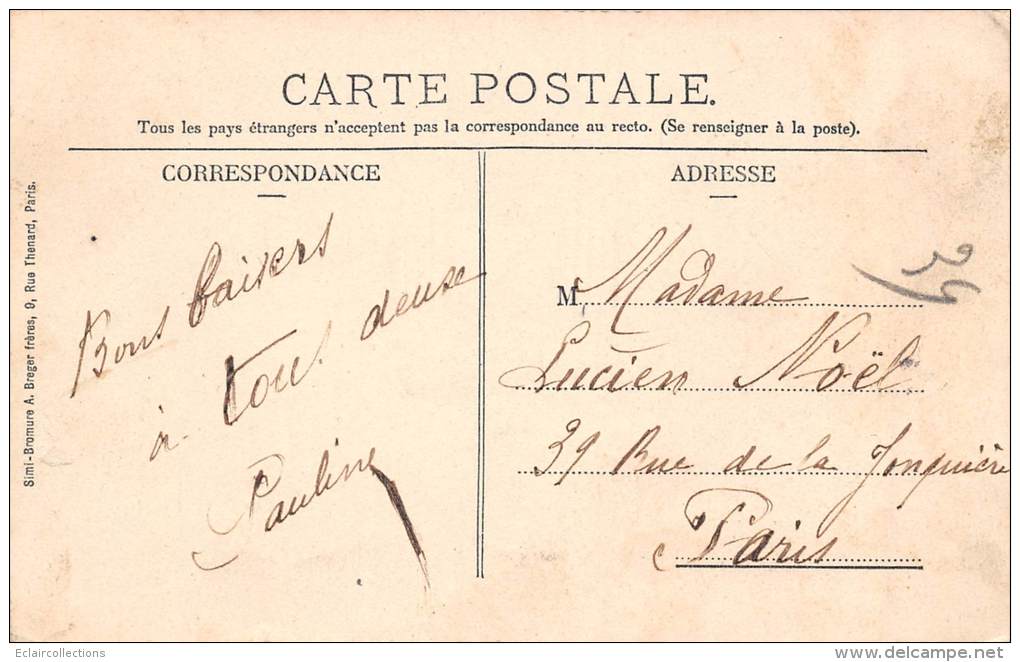 CARTE POSTALE.
Tous les pays étrangers n'acceptent pas la correspondance au recto. (Se renseigner à la poste).
CORRESPONDANCE
Bons baisers
à tous deuse
Pauline
ADRESSE
M Madame
Lucien Noël
39 Rue de la Jonquière
Paris
39
Simi-Bromure A. Breger frères, 9, Rue Thenard, Paris.
Eclaircollections
delcampe.net